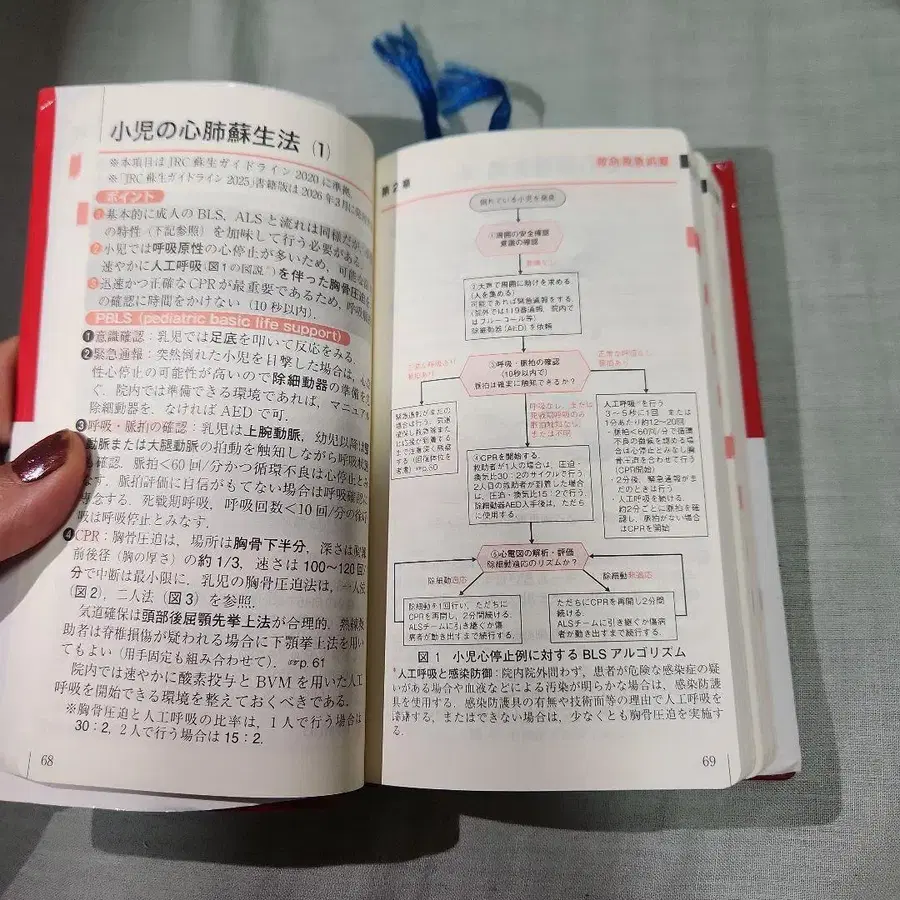 小児の心肺蘇生法 (1)
※本項目は JRC 蘇生ガイドライン 2020 に準拠
※「JRC 蘇生ガイドライン 2025」書籍版は 2026 年3月に
ポイント
❶基本的に成人の BLS, ALS と流れは同様だが,
の特性(下記参照)を加味して行う必要がある.
❷小児では呼吸原性の心停止が多いため, 可能な
速やかに人工呼吸(図1の図説*)を伴った胸骨圧迫
❸迅速かつ正確なCPRが最重要であるため, 呼吸
の確認に時間をかけない (10 秒以内).
PBLS (pediatric basic life support)
❶意識確認:乳児では足底を叩いて反応をみる.
❷緊急通報:突然倒れた小児を目撃した場合は,
性心停止の可能性が高いので除細動器の準備を
く. 院内では準備できる環境であれば, マニュアル
除細動器を, なければ AED で可.
❸呼吸・脈拍の確認:乳児は上腕動脈, 幼児以降は
動脈または大腿動脈の拍動を触知しながら呼吸
も確認. 脈拍<60 回/分かつ循環不良は心停止と
なす. 脈拍評価に自信がもてない場合は呼吸確認に
専念する. 死戦期呼吸, 呼吸回数<10 回/分の徐
吸は呼吸停止とみなす.
❹CPR:胸骨圧迫は, 場所は胸骨下半分, 深さは
前後径(胸の厚さ)の約 1/3, 速さは 100〜120 回/
分で中断は最小限に. 乳児の胸骨圧迫法は, 一人法
(図2), 二人法(図3)を参照.
気道確保は頭部後屈顎先挙上法が合理的. 熟練救
助者は脊椎損傷が疑われる場合に下顎挙上法を用い
てもよい(用手固定も組み合わせて). ☞p. 61
院内では速やかに酸素投与と BVM を用いた人工
呼吸を開始できる環境を整えておくべきである.
※胸骨圧迫と人工呼吸の比率は, 1人で行う場合は
30:2, 2人で行う場合は 15:2.
68
第2章
倒れている小児を発見
①周囲の安全確認
意識の確認
②大声で周囲に助けを求める
(人を集める)
可能であれば緊急通報をする
(院外では119番通報, 院内で
はブルーコール等)
除細動器(AED)を依頼
③呼吸・脈拍の確認
(10秒以内で)
脈拍は確実に触知できるか?
正常な呼吸なし
脈拍あり
緊急通報がまだの
場合は行う. 気道
確保し救急隊また
は応援が到着する
まで注意深く観察
する(回復体位を
考慮) ☞p.60
呼吸なし, または
死戦期呼吸のみ
脈拍触知なし
または不明
人工呼吸*を行う
3〜5秒に1回 または
1分あたり約12〜20回
・脈拍<60回/分で循環
不良の徴候を認める場合
は心停止とみなし胸
骨圧迫を合わせて行う
(CPR開始)
・2分後, 緊急通報がま
だのときは行う
・人工呼吸を続ける.
約2分ごとに脈拍を確
認し, 脈拍がない場合
はCPRを開始
④CPRを開始する
救助者が1人の場合は, 圧迫・
換気比30:2のサイクルで行う
2人目の救助者が到着した場合
は, 圧迫・換気比15:2で行う
除細動器AED入手後は, ただち
に使用する.
⑤心電図の解析・評価
除細動適応のリズムか?
除細動適応
除細動非適応
除細動を1回行い, ただちに
CPRを再開し, 2分間続ける.
ALSチームに引き継ぐか傷
病者が動き出すまで続行する.
ただちにCPRを再開し2分間
続ける.
ALSチームに引き継ぐか傷病
者が動き出すまで続行する.
図 1 小児心停止例に対する BLS アルゴリズム
*人工呼吸と感染防御:院内院外問わず, 患者が危険な感染症の疑
いがある場合や血液などによる汚染が明らかな場合は, 感染防護
具を使用する. 感染防護具の有無や技術面等の理由で人工呼吸を
躊躇する, またはできない場合は, 少なくとも胸骨圧迫を実施す
る.
69